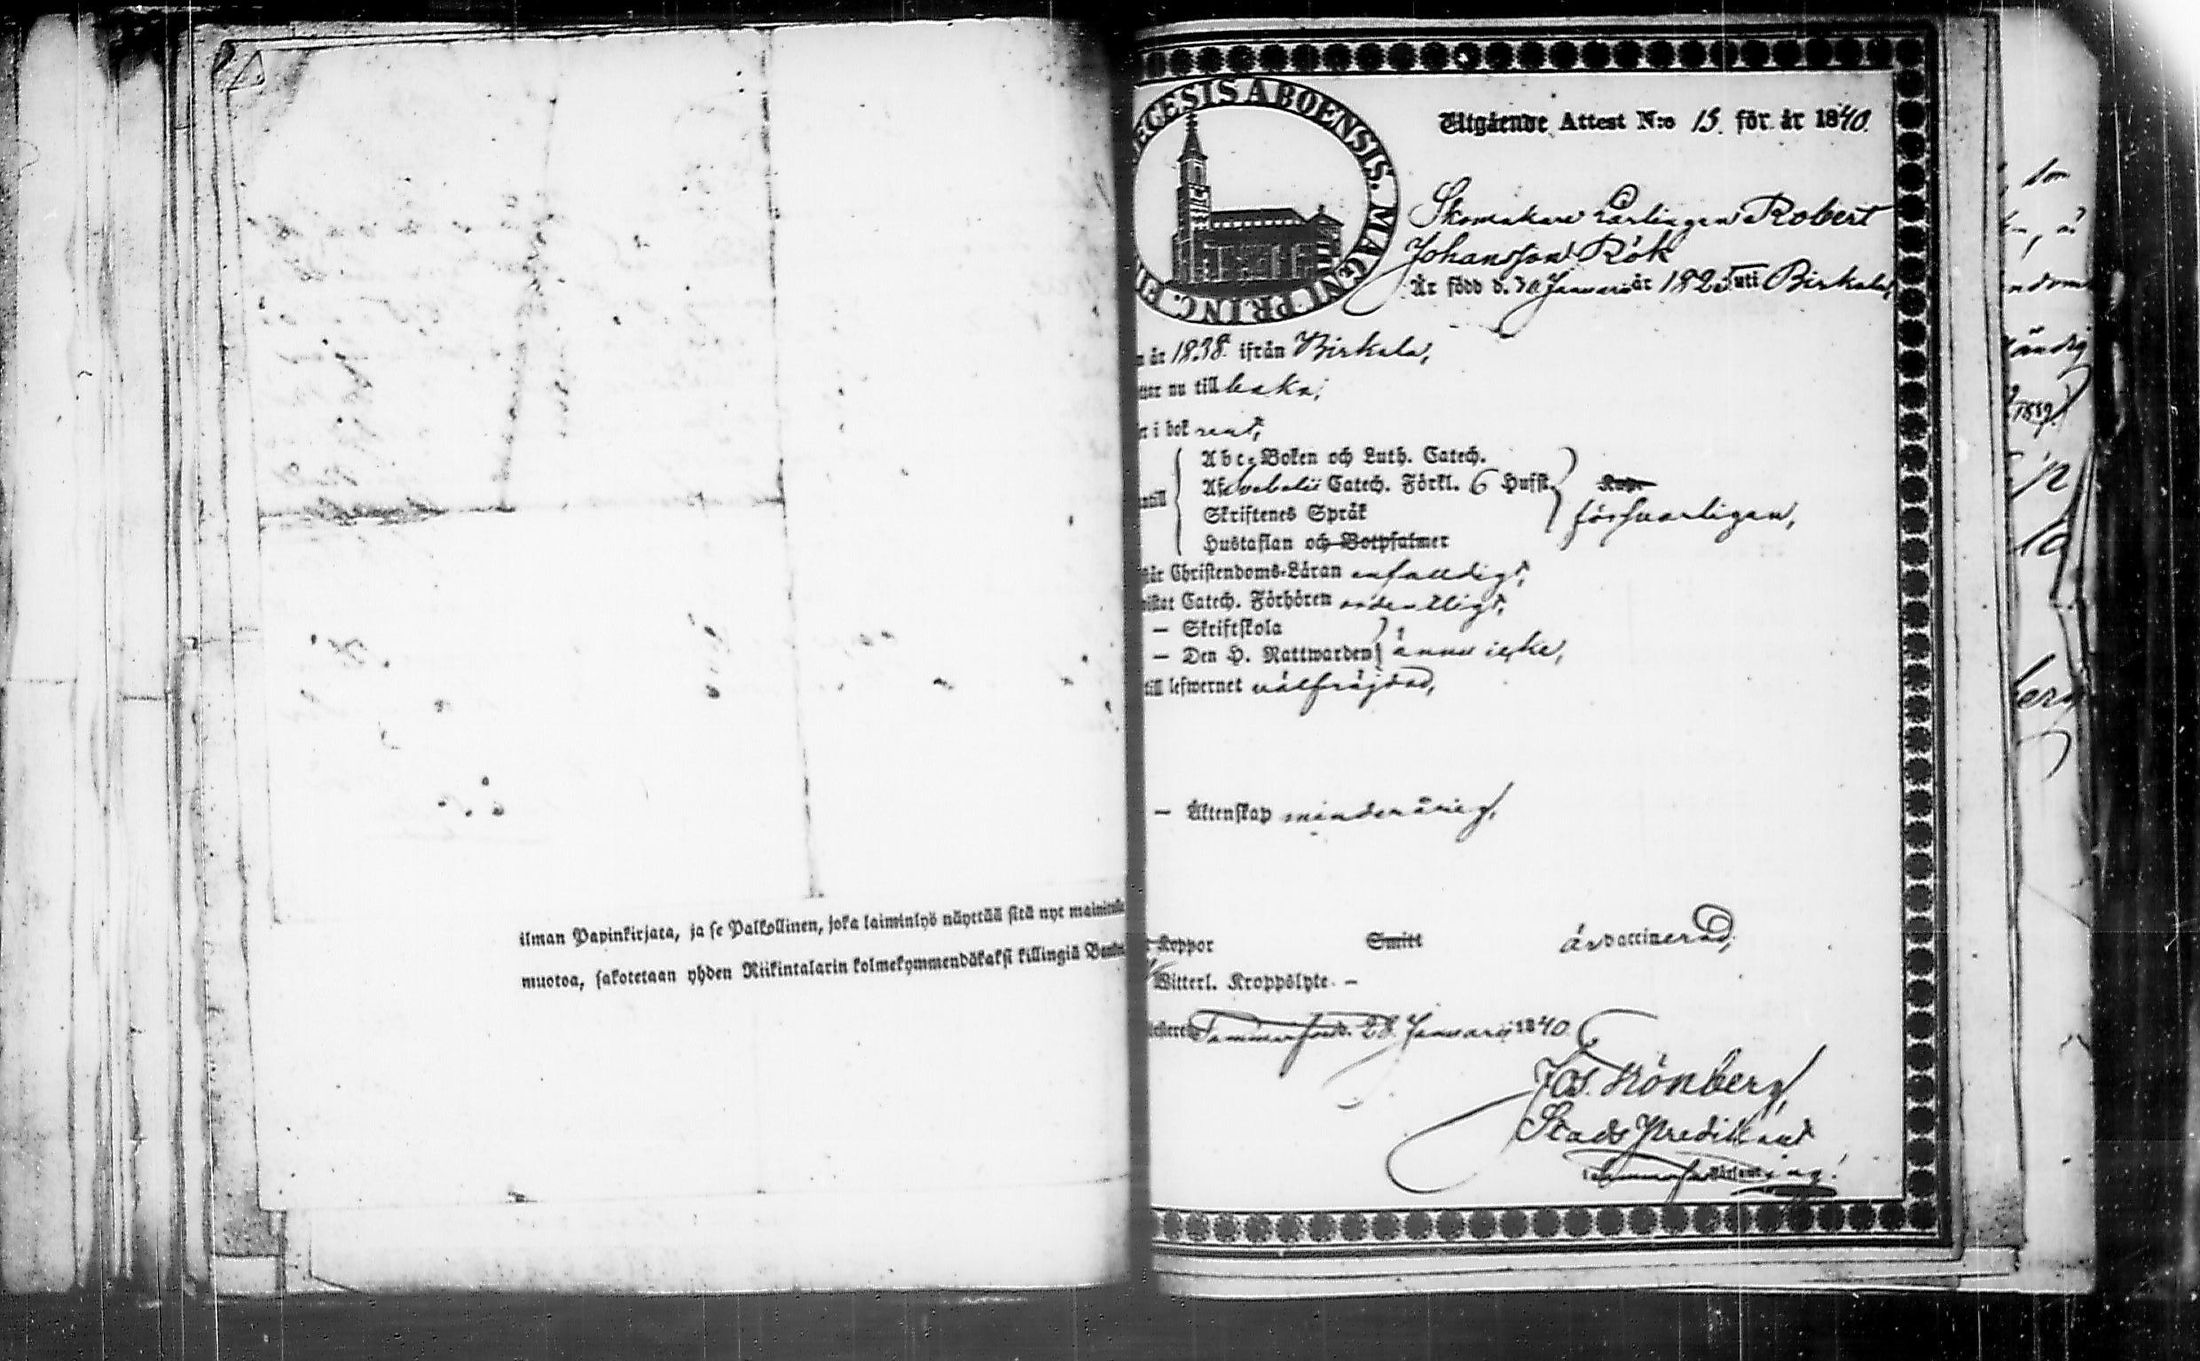 ilman Papinkirjata, ja se Palkollinen, joka laiminlyö näyttää sitä nyt
muotoa, sakotetaan yhden Riikintalarin kolmekymmendäkaksi killingiä
ŒCESIS ABOENSIS. MAGNI PRINC. FI
Utgående Attest N:o 15. för år 1840.
Skomakare Lärlingen Robert
Johansson Rök
Är född d. 30 Januarii år 1825 uti Birkala,
år 1838. ifrån Birkala,
nu till baka;
i bok rent,
Abc-Boken och Luth. Catech.
Svebelii Catech. Förkl. 6 Hufst.
Skriftenes Språk
försvarligen,
Hustaflan och Botpsalmer
Christendoms-Läran enfaldigt,
Catech. Förhören ordentligt,
— Skriftskola
— Den H. Nattwarden ännu icke,
till lefwernet välfräjdad,
— Äktenskap minderårig,
Koppor Smitt är vaccinerad,
Witterl. Kroppslyte. —
Tammerfors d. 28. Januarii 1840
Jos. Grönberg
Stads Predikant